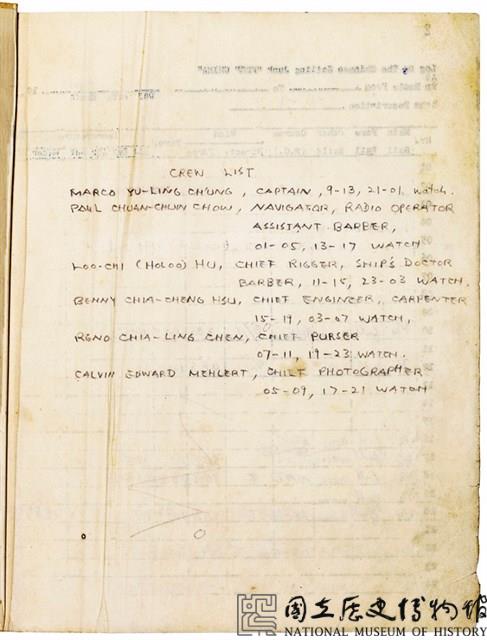 CREW LIST
MARCO YU-LING CHUNG, CAPTAIN, 9-13, 21-01 watch.
PAUL CHUAN-CHUIN CHOW, NAVIGATOR, RADIO OPERATOR
ASSISTANT BARBER,
01-05, 13-17 WATCH
LOO-CHI (HOLOO) HU, CHIEF RIGGER, SHIP'S DOCTOR
BARBER, 11-15, 23-03 WATCH.
BENNY CHIA-CHENG HSU, CHIEF ENGINEER, CARPENTER
15-19, 03-07 WATCH,
RENO CHIA-LING CHEN, CHIEF PURSER
07-11, 19-23 WATCH.
CALVIN EDWARD MEHLERT, CHIEF PHOTOGRAPHER
05-09, 17-21 WATCH
國立歷史博物館
NATIONAL MUSEUM OF HISTORY